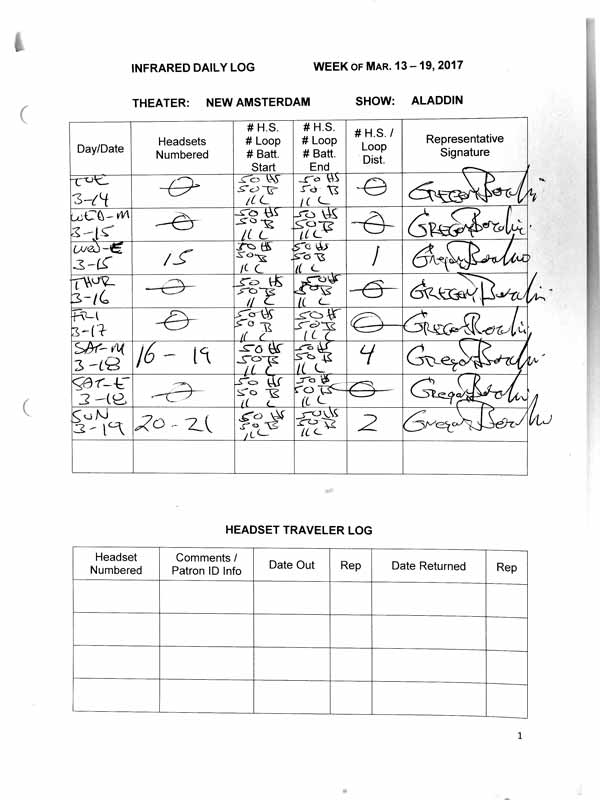 INFRARED DAILY LOG WEEK OF MAR. 13 – 19, 2017
THEATER: NEW AMSTERDAM SHOW: ALADDIN
Day/Date Headsets Numbered # H.S. # Loop # Batt. Start # H.S. # Loop # Batt. End # H.S. / Loop Dist. Representative Signature
TUE 3-14 0 50 HS 50 B 11 C 50 HS 50 B 11 C 0 GREGORY
WED-M 3-15 0 50 HS 50 B 11 C 50 HS 50 B 11 C 0 GREGORY
WED-E 3-15 15 50 HS 50 B 11 C 50 HS 50 B 11 C 1 Gregory
THUR 3-16 0 50 HS 50 B 11 C 50 HS 50 B 11 C 0 GREGORY
FRI 3-17 0 50 HS 50 B 11 C 50 H 50 B 11 C 0 Gregory
SAT-M 3-18 16 - 19 50 HS 50 B 11 C 50 HS 50 B 11 C 4 Gregory
SAT-E 3-18 0 50 HS 50 B 11 C 50 HS 50 B 11 C 0 Gregory
SUN 3-19 20-21 50 HS 50 B 11 C 50 HS 50 B 11 C 2 Gregory
HEADSET TRAVELER LOG
Headset Numbered Comments / Patron ID Info Date Out Rep Date Returned Rep
1